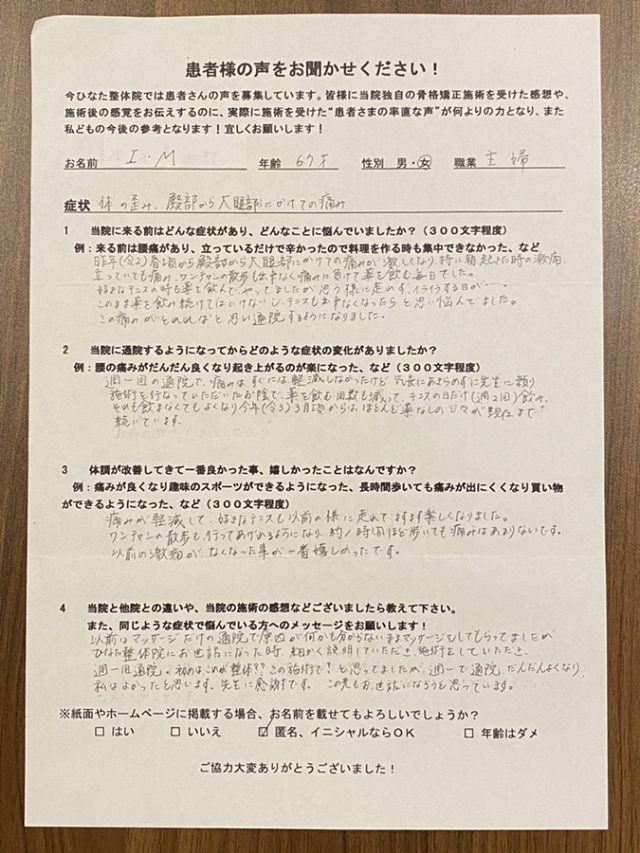 患者様の声をお聞かせください！
今ひなた整体院では患者さんの声を募集しています。皆様に当院独自の骨格矯正施術を受けた感想や、
施術後の感覚をお伝えするのに、実際に施術を受けた“患者さまの率直な声”が何よりの力となり、また
私どもの今後の参考となります！宜しくお願いします！
お名前 I・M 年齢 67才 性別 男・女 職業 主婦
症状 体の歪み、殿部から大腿部にかけての痛み
1 当院に来る前はどんな症状があり、どんなことに悩んでいましたか？（３００文字程度）
例：来る前は腰痛があり、立っているだけで辛かったので料理を作る時も集中できなかった、など
昨年(令2)春頃から殿部から大腿部にかけての痛みが激しくなり特に朝起きた時の激痛、
立っていても痛み、ワンチャンの散歩も出来なく痛みに負けて薬を飲む毎日でした。
好きなテニスの時も薬を飲んでやってましたが思う様に走れず、イライラする日が……。
このまま薬を飲み続けてはいけないし、テニスも出来なくなったらと思い悩んでました。
この痛みがとれればと思い通院するようになりました。
2 当院に通院するようになってからどのような症状の変化がありましたか？
例：腰の痛みがだんだん良くなり起き上がるのが楽になった、など（３００文字程度）
週一回の通院で、痛みはすぐには軽減しなかったけど、気長にあきらめずに先生に頼り
施術を行なっていただいたお陰で、薬を飲む回数も減って、テニスの日だけ(週2回)飲み、
それも飲まなくてもよくなり今年(令3)3月頃からは、ほとんど薬なしの日々が現在まで
続いています。
3 体調が改善してきて一番良かった事、嬉しかったことはなんですか？
例：痛みが良くなり趣味のスポーツができるようになった、長時間歩いても痛みが出にくくなり買い物
ができるようになった、など（３００文字程度）
痛みが軽減して、好きなテニスも以前の様に走れてますます楽しくなりました。
ワンチャンの散歩も、行ってあげれるようになり、約1時間ほど歩いても痛みはあまりないです。
以前の激痛が、なくなった事が一番嬉しかったです。
4 当院と他院との違いや、当院の施術の感想などございましたら教えて下さい。
また、同じような症状で悩んでいる方へのメッセージをお願いします！
以前はマッサージだけの通院で原因が何かも分からないままマッサージをしてもらってましたが
ひなた整体院にお世話になった時、細かく説明していただき、施術をしていただき、
週一回通院。初めはこれが整体??この施術で!と思ってましたが、週一で通院だんだんよくなり、
私はよかったと思います。先生に感謝です。この先もお世話になろうと思っています。
※紙面やホームページに掲載する場合、お名前を載せてもよろしいでしょうか？
□ はい □ いいえ ☑ 匿名、イニシャルならＯＫ □ 年齢はダメ
ご協力大変ありがとうございました！